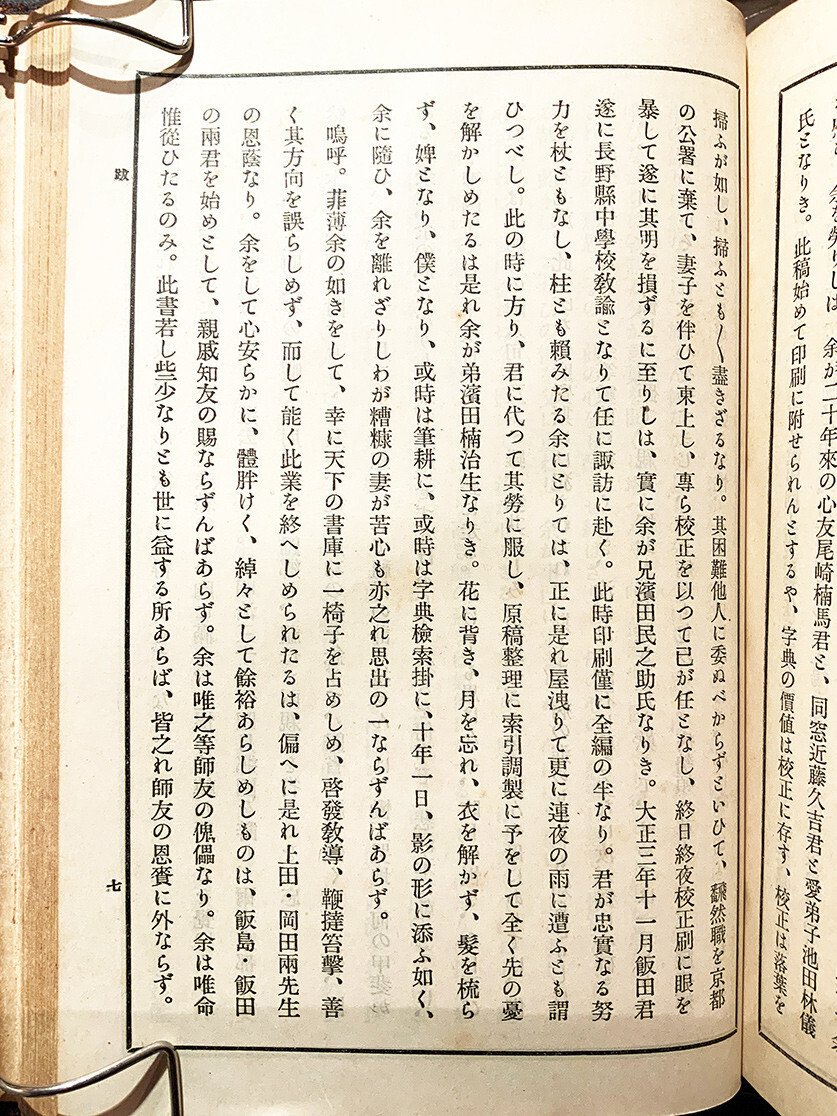 余が二十年來の心友尾崎楠馬君と、同窓近藤久吉君と愛弟子池田林儀
氏となりき。此稿始めて印刷に附せられんとするや、字典の價値は校正に存す、校正は落葉を
掃ふが如し、掃ふとも〱盡きざるなり。其困難他人に委ぬべからずといひて、飜然職を京都
の公署に棄て、妻子を伴ひて東上し、專ら校正を以つて己が任となし、終日終夜校正刷に眼を
暴して遂に其明を損ずるに至りしは、實に余が兄濱田民之助氏なりき。大正三年十一月飯田君
遂に長野縣中學校敎諭となりて任に諏訪に赴く。此時印刷僅に全編の半なり。君が忠實なる努
力を杖ともなし、柱とも賴みたる余にとりては、正に是れ屋洩りて更に連夜の雨に遭ふとも謂
ひつべし。此の時に方り、君に代つて其勞に服し、原稿整理に索引調製に予をして全く先の憂
を解かしめたるは是れ余が弟濱田楠治生なりき。花に背き、月を忘れ、衣を解かず、髮を梳ら
ず、婢となり、僕となり、或時は筆耕に、或時は字典檢索掛に、十年一日、影の形に添ふ如く、
余に隨ひ、余を離れざりしわが糟糠の妻が苦心も亦之れ思出の一ならずんばあらず。
嗚呼。菲薄余の如きをして、幸に天下の書庫に一椅子を占めしめ、啓發敎導、鞭撻笞擊、善
く其方向を誤らしめず、而して能く此業を終へしめられたるは、偏へに是れ上田・岡田兩先生
の恩蔭なり。余をして心安らかに、體胖けく、綽々として餘裕あらしめしものは、飯島・飯田
の兩君を始めとして、親戚知友の賜ならずんばあらず。余は唯之等師友の傀儡なり。余は唯命
惟從ひたるのみ。此書若し些少なりとも世に益する所あらば、皆之れ師友の恩賚に外ならず。
跋
七